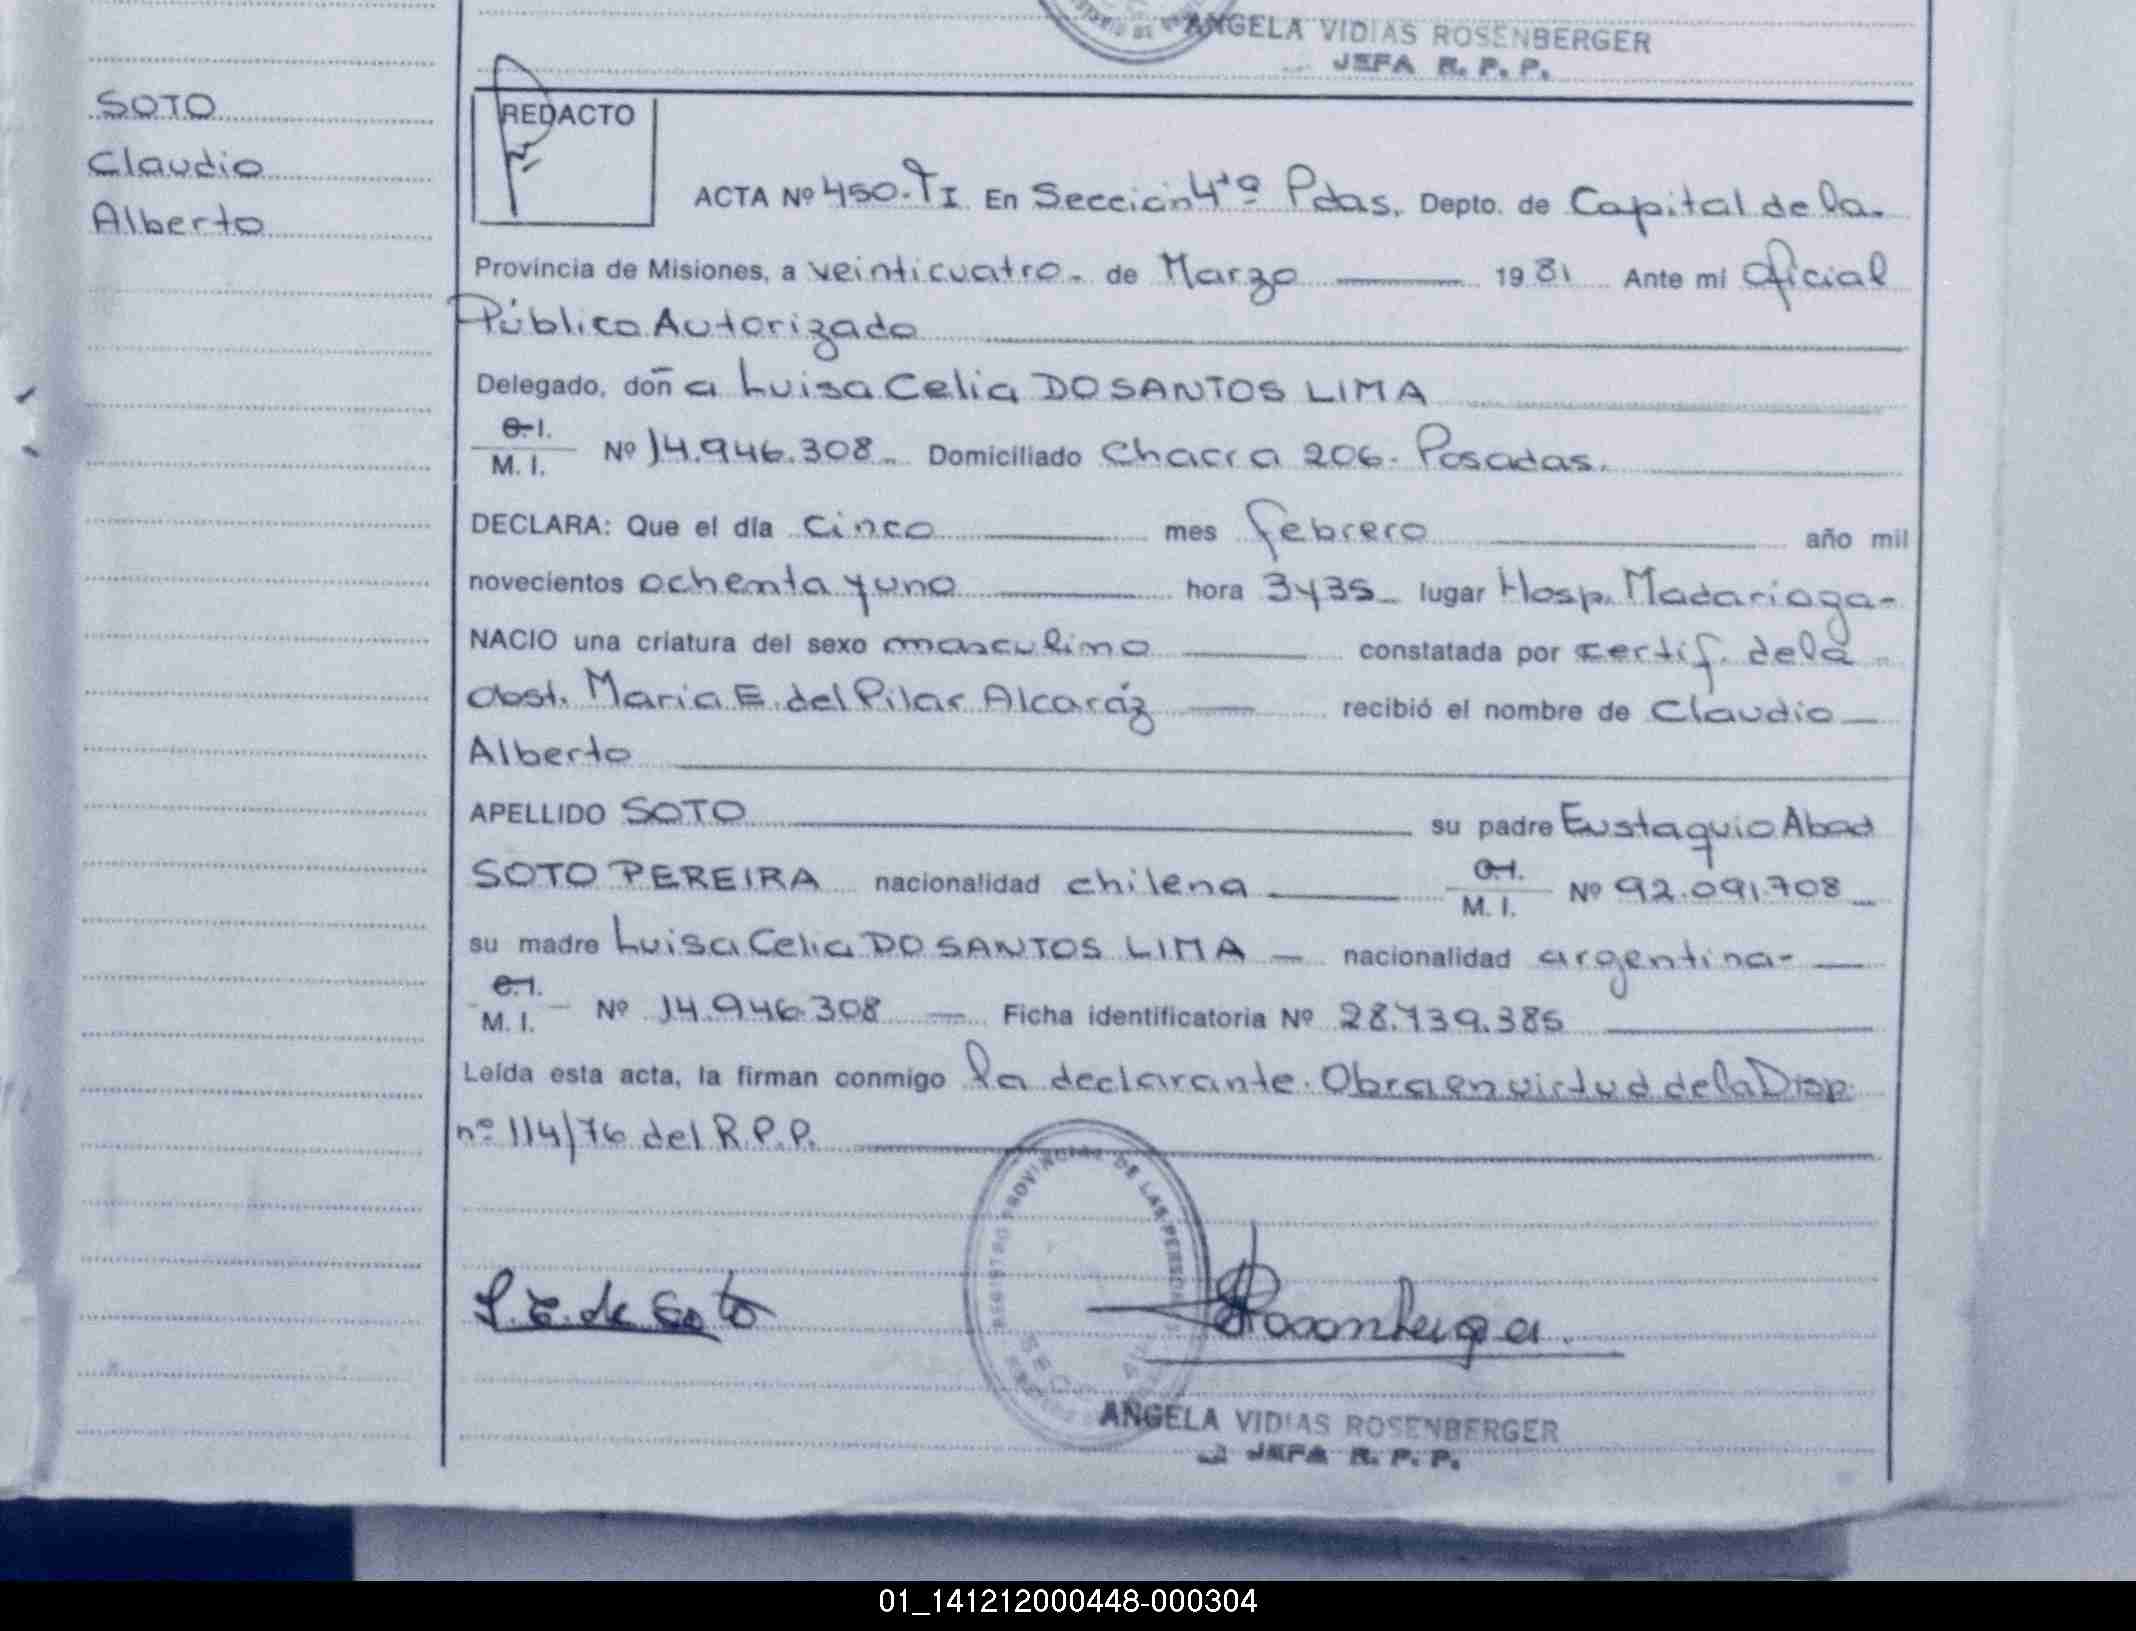 ANGELA VIDIAS ROSENBERGER
JEFA R. P. P.
SOTO
Claudio
Alberto
REDACTO
ACTA Nº 450-TI En Sección 4ta Pdas. Depto. de Capital de la
Provincia de Misiones, a veinticuatro de Marzo 1981 Ante mi Oficial
Público Autorizado
Delegado, doña Luisa Celia DO SANTOS LIMA
C. I.
M. I. Nº 14.946.308 Domiciliado Chacra 206. Posadas.
DECLARA: Que el día cinco mes febrero año mil
novecientos ochenta y uno hora 3y35 lugar Hosp. Madariaga-
NACIO una criatura del sexo masculino constatada por certif. de la
Obst. Maria E. del Pilar Alcaráz recibió el nombre de Claudio
Alberto
APELLIDO SOTO su padre Eustaquio Abad
SOTO PEREIRA nacionalidad chilena C. I. M. I. Nº 92.091.708
su madre Luisa Celia DO SANTOS LIMA nacionalidad argentina-
C. I.
M. I. Nº 14.946.308 Ficha identificatoria Nº 28.739.385
Leída esta acta, la firman conmigo la declarante. Obra en virtud de la Disp.
nº 114/76 del R.P.P.
REGISTRO PROVINCIAL DE LAS PERSONAS
de Soto
Rosenberger
ANGELA VIDIAS ROSENBERGER
JEFA R. P. P.
01_141212000448-000304